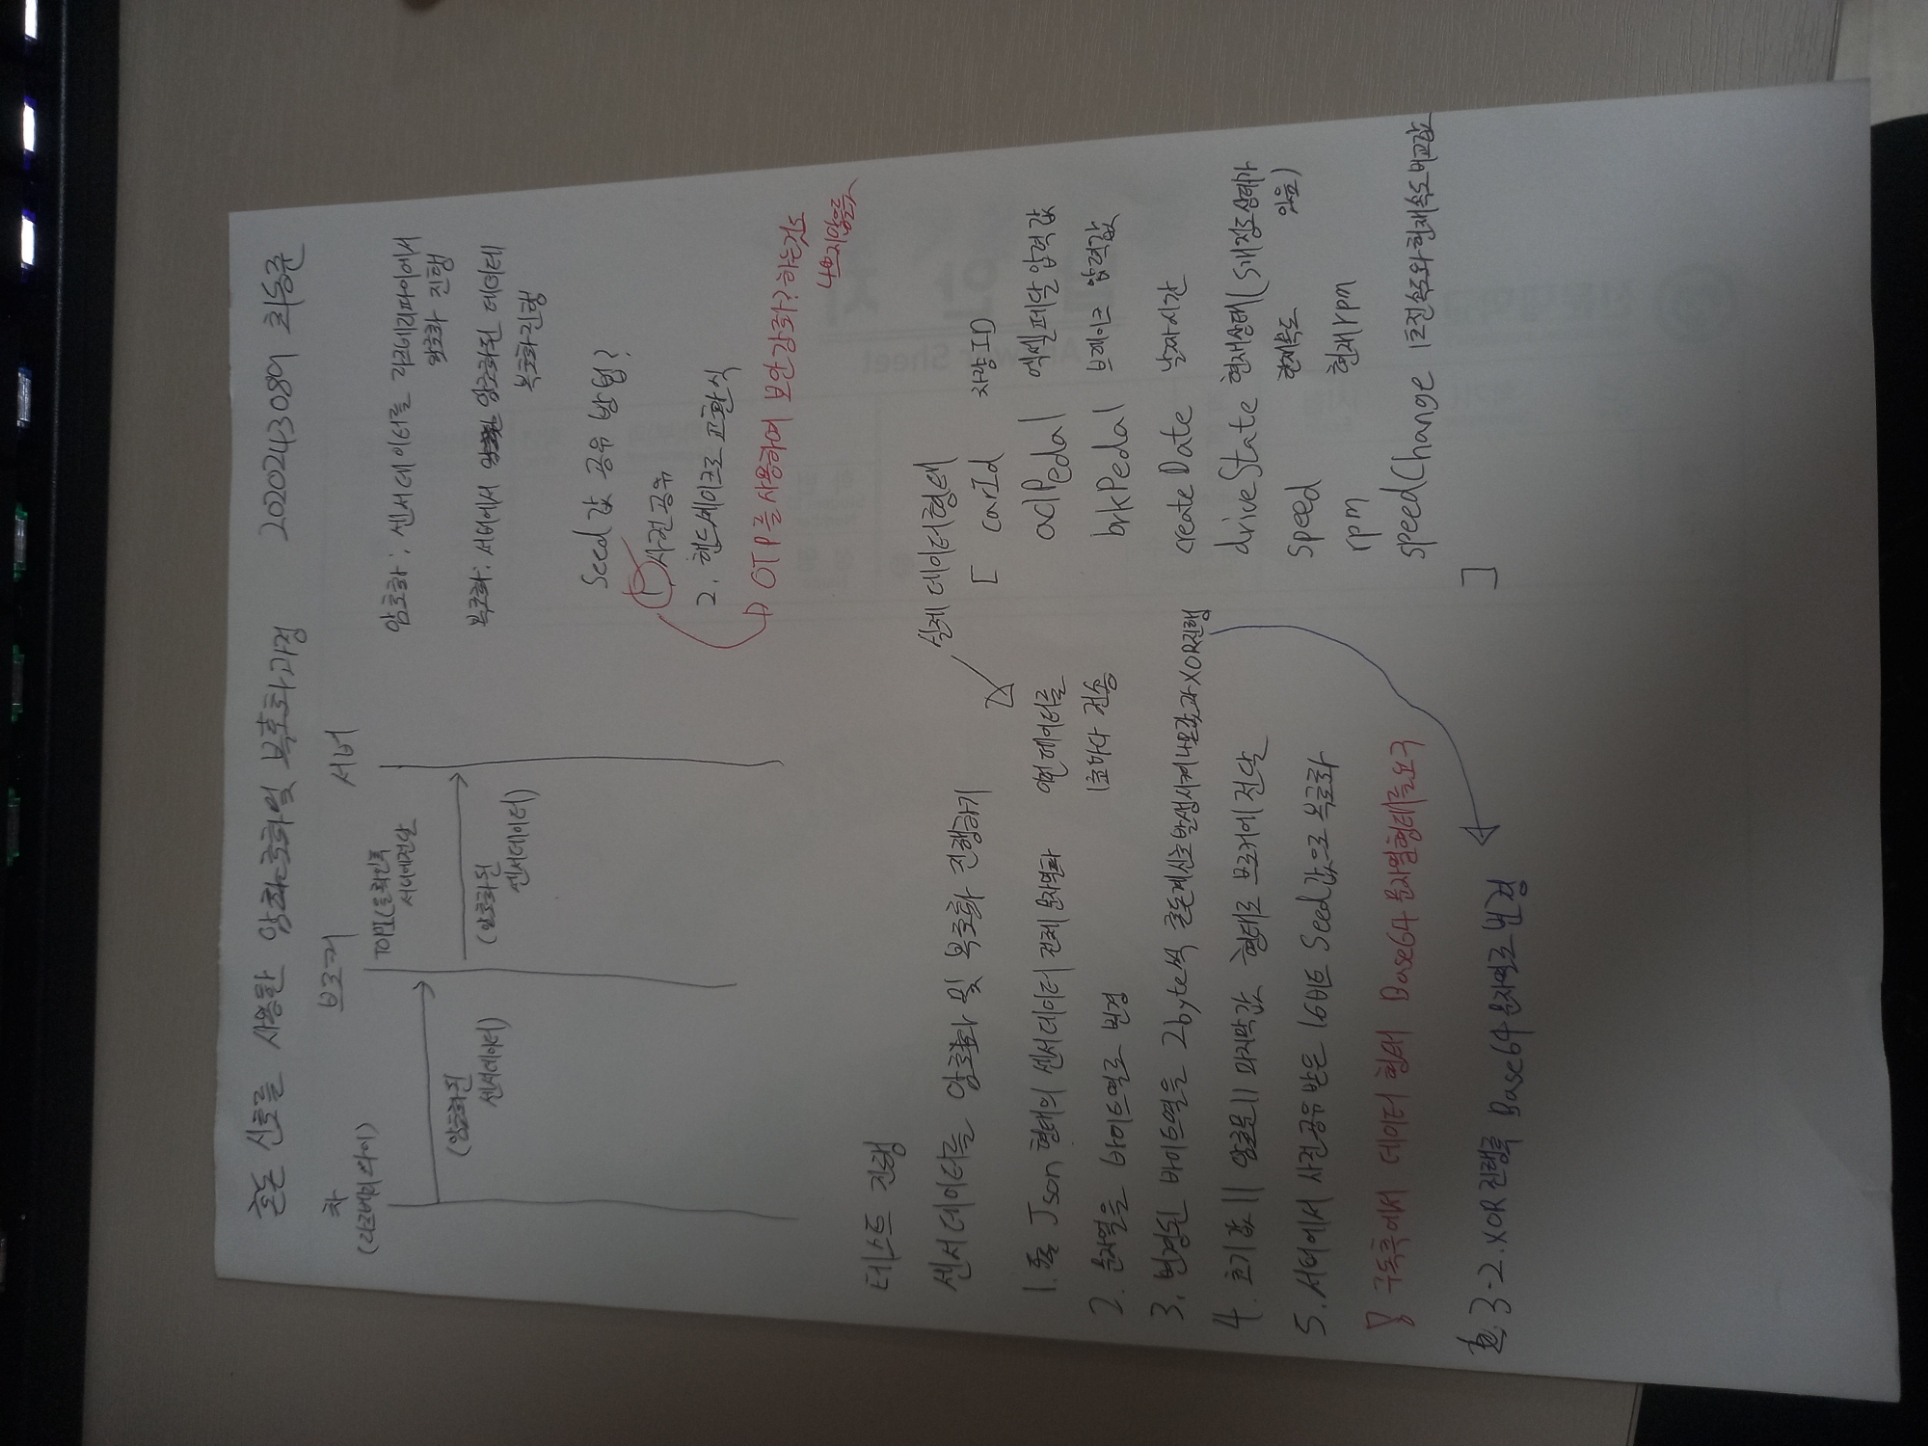 혼돈 신호를 사용한 암호화 및 복호화 과정 2020243089 최동준
차
(라즈베리 파이)
브로커
서버
TOPIC을 확인 후
서버에 전달
(암호화된
센서데이터)
(암호화된
센서데이터)
암호화 : 센서 데이터를 라즈베리파이에서
암호화 진행
복호화 : 서버에서 암호화된 데이터
복호화 진행
Seed 값 공유 방법?
1 사전공유
2. 핸드쉐이크로 교환식
OTP를 사용하여 보안강화? 하는것도
나쁘지않을듯
테스트 진행
센서 데이터를 암호화 및 복호화 진행하기
1. Json 형태의 센서데이터 전체 문자열화
2. 문자열을 바이트열로 변경
3. 변경된 바이트열을 2byte씩 혼돈계신호 발생시켜 나온값과 XOR진행
4. 초기값 || 암호문 || 마지막값 형태로 브로커에 전달
5. 서버에서 사전공유 받은 16비트 Seed값으로 복호화
! 구독측에서 데이터 형태 Base64 문자열형태를 요구
3-2. XOR 진행후 Base64 문자열로 변경
실제 데이터 형태
이런 데이터를
1초마다 전송
[ carId 차량ID
aclPedal 엑셀페달 압력값
brkPedal 브레이크 압력값
createDate 날짜시간
driveState 현재상태(5개정도상태가
있음)
speed 현재속도
rpm 현재rpm
speedChange 1초전속도와 현재속도 비교값
]